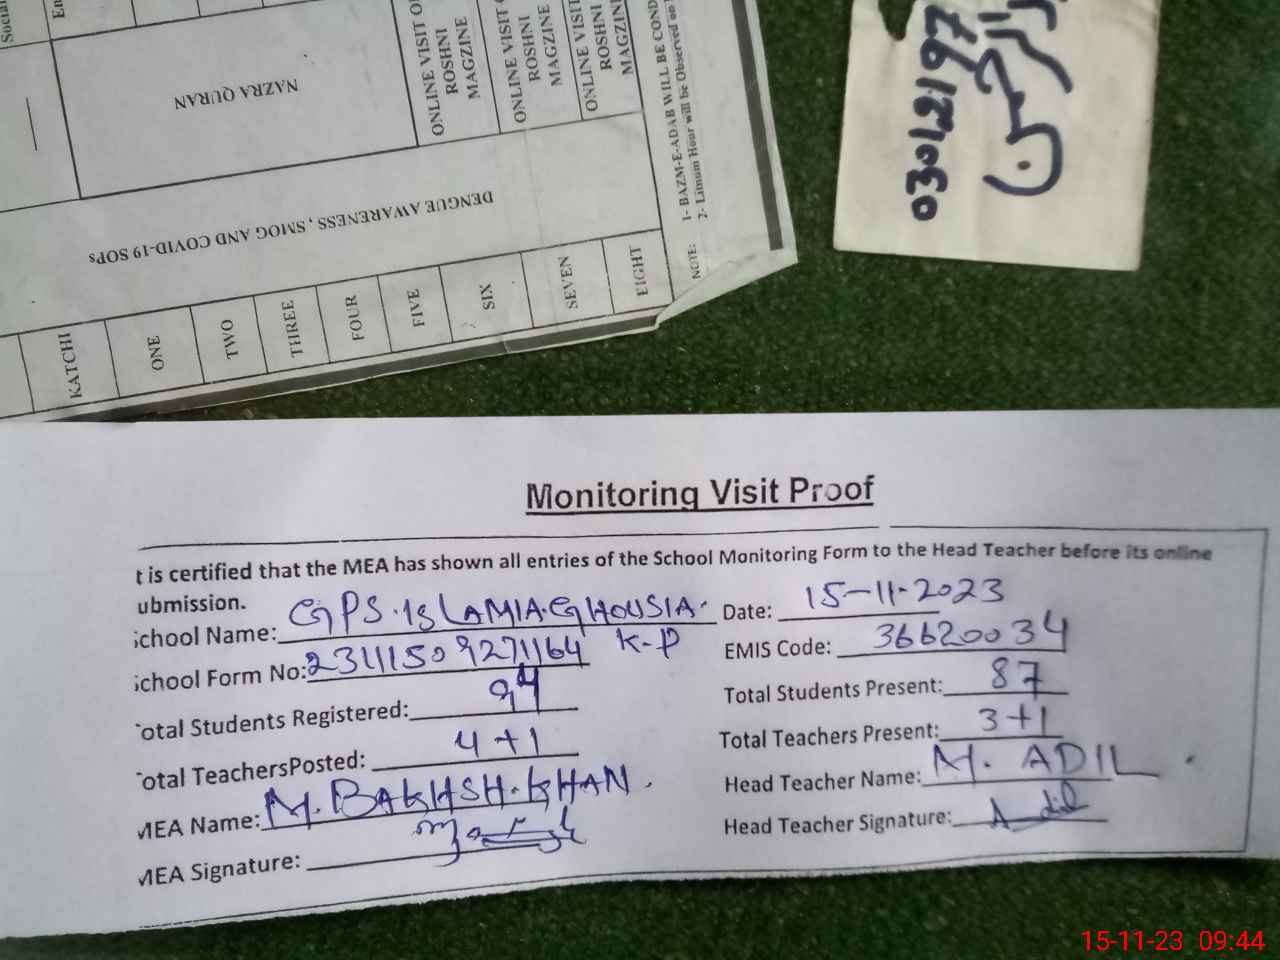 Social
En
NAZRA QURAN
ONLINE VISIT OF
ROSHNI
MAGZINE
ONLINE VISIT
ROSHNI
MAGZINE
ONLINE VISIT
ROSHNI
MAGZINE
DENGUE AWARENESS, SMOG AND COVID-19 SOPs
KATCHI
ONE
TWO
THREE
FOUR
FIVE
SIX
SEVEN
EIGHT
NOTE:
1- BAZM-E-ADAB WILL BE COND
2- Litnum Hour will be Observed on
03012197
Monitoring Visit Proof
t is certified that the MEA has shown all entries of the School Monitoring Form to the Head Teacher before its online
ubmission.
School Name: GPS. ISLAMIA. GHOUSIA. K-P Date: 15-11-2023
School Form No: 23411509271164 EMIS Code: 36620034
otal Students Registered: 94 Total Students Present: 87
otal TeachersPosted: 4+1 Total Teachers Present: 3+1
MEA Name: M. BAKHSH. KHAN. Head Teacher Name: M. ADIL
MEA Signature: Head Teacher Signature: Adil
15-11-23 09:44